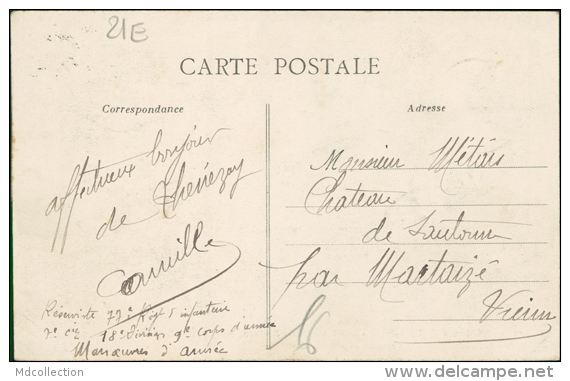 21E
CARTE POSTALE
Correspondance
Adresse
affectueux bonjour
de Thénezay
Camille
Réserviste 77e Regt d'infanterie
7e Cie 18e division 9e corps d'armée
Manœuvres d'armée
Monsieur Métais
Chateau
de
par Martaizé
Vienne
Mdcollection
www.delcampe.net